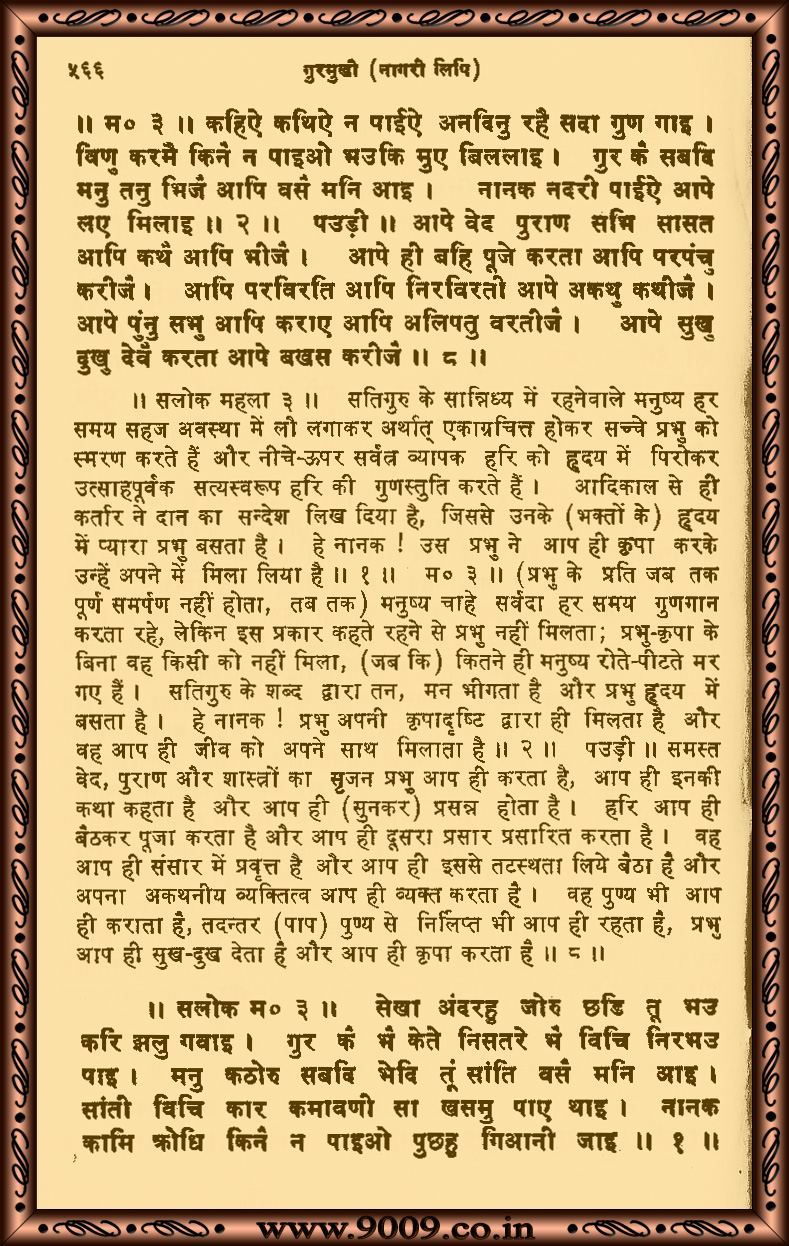 ५६६ गुरमुखी (नागरी लिपि)
॥ म० ३ ॥ कहिऐ कथिऐ न पाईऐ अनदिनु रहै सदा गुण गाइ ।
विणु करमै किनै न पाइओ भउकि मुए बिललाइ । गुर कै सबदि
मनु तनु भिजै आपि वसै मनि आइ । नानक नदरी पाईऐ आपे
लए मिलाइ ॥ २ ॥ पउड़ी ॥ आपे वेद पुराण सभि सासत
आपि कथै आपि भीजै । आपे ही बहि पूजे करता आपि परपंचु
करीजै । आपि परविरति आपि निरविरती आपे अकथु कथीजै ।
आपे पुंनु सभु आपि कराए आपि अलिपतु वरतीजै । आपे सुखु
दुखु देवै करता आपे बखस करीजै ॥ ८ ॥
॥ सलोक महला ३ ॥ सतिगुरु के सान्निध्य में रहनेवाले मनुष्य हर
समय सहज अवस्था में लौ लगाकर अर्थात् एकाग्रचित्त होकर सच्चे प्रभु को
स्मरण करते हैं और नीचे-ऊपर सर्वत्र व्यापक हरि को हृदय में पिरोकर
उत्साहपूर्वक सत्यस्वरूप हरि की गुणस्तुति करते हैं । आदिकाल से ही
कर्तार ने दान का सन्देश लिख दिया है, जिससे उनके (भक्तों के) हृदय
में प्यारा प्रभु बसता है । हे नानक ! उस प्रभु ने आप ही कृपा करके
उन्हें अपने में मिला लिया है ॥ १ ॥ म० ३ ॥ (प्रभु के प्रति जब तक
पूर्ण समर्पण नहीं होता, तब तक) मनुष्य चाहे सर्वदा हर समय गुणगान
करता रहे, लेकिन इस प्रकार कहते रहने से प्रभु नहीं मिलता; प्रभु-कृपा के
बिना वह किसी को नहीं मिला, (जब कि) कितने ही मनुष्य रोते-पीटते मर
गए हैं । सतिगुरु के शब्द द्वारा तन, मन भीगता है और प्रभु हृदय में
बसता है । हे नानक ! प्रभु अपनी कृपादृष्टि द्वारा ही मिलता है और
वह आप ही जीव को अपने साथ मिलाता है ॥ २ ॥ पउड़ी ॥ समस्त
वेद, पुराण और शास्त्रों का सृजन प्रभु आप ही करता है, आप ही इनकी
कथा कहता है और आप ही (सुनकर) प्रसन्न होता है । हरि आप ही
बैठकर पूजा करता है और आप ही दूसरा प्रसार प्रसारित करता है । वह
आप ही संसार में प्रवृत्त है और आप ही इससे तटस्थता लिये बैठा है और
अपना अकथनीय व्यक्तित्व आप ही व्यक्त करता है । वह पुण्य भी आप
ही कराता है, तदन्तर (पाप) पुण्य से निर्लिप्त भी आप ही रहता है, प्रभु
आप ही सुख-दुख देता है और आप ही कृपा करता है ॥ ८ ॥
॥ सलोक म० ३ ॥ सेखा अंदरहु जोरु छडि तू भउ
करि झलु गवाइ । गुर कै भै केते निसतरे भै विचि निरभउ
पाइ । मनु कठोरु सबदि भेदि तूं सांति वसै मनि आइ ।
सांती विचि कार कमावणी सा खसमु पाए थाइ । नानक
कामि क्रोधि किनै न पाइओ पुछहु गिआनी जाइ ॥ १ ॥
www.9009.co.in